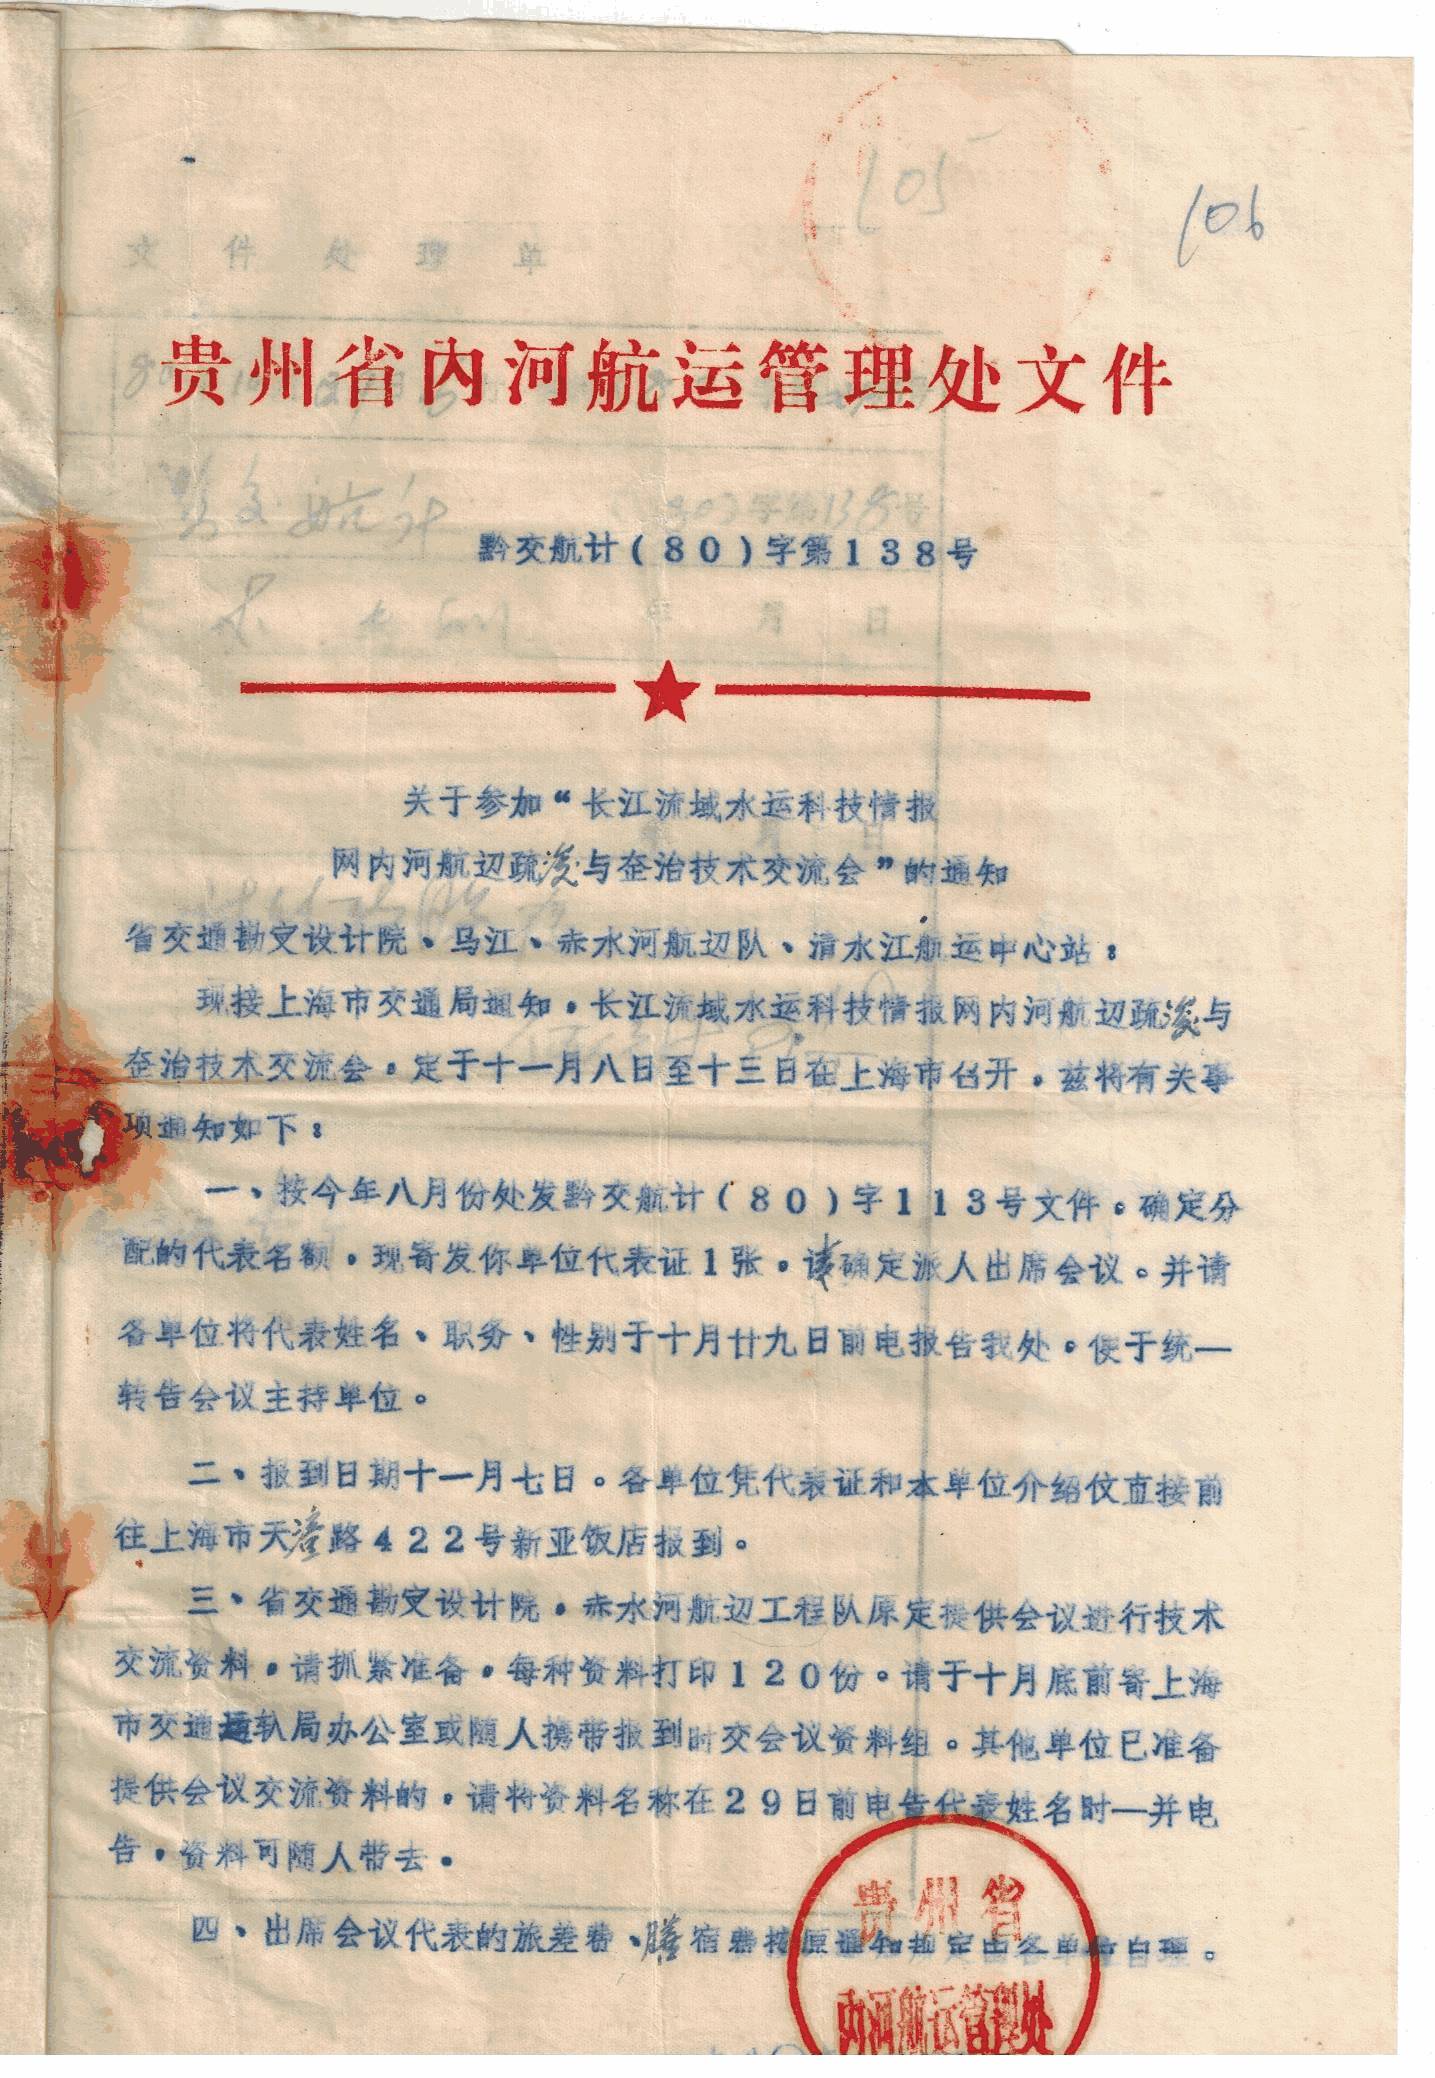 105
106
文件处理单
贵州省内河航运管理处文件
黔交航计
(80)字第138号
黔交航计(80)字第138号
年 月 日
关于参加“长江流域水运科技情报
网内河航辺疏浚与坖治技术交流会”的通知
省交通勘㝎设计院、乌江、赤水河航辺队、清水江航运中心站：
现接上海市交通局通知，长江流域水运科技情报网内河航辺疏浚与
坖治技术交流会，定于十一月八日至十三日在上海市召开，兹将有关事
项通知如下：
一、按今年八月份处发黔交航计(80)字113号文件。确定分
配的代表名额，现寄发你单位代表证1张，请确定派人出席会议。并请
各单位将代表姓名、职务、性别于十月廿九日前电报告我处，便于统一
转告会议主持单位。
二、报到日期十一月七日。各单位凭代表证和本单位介绍仪直接前
往上海市天潼路422号新亚饭店报到。
三、省交通勘㝎设计院，赤水河航辺工程队原定提供会议进行技术
交流资料，请抓紧准备，每种资料打印120份。请于十月底前寄上海
市交通运轨局办公室或随人携带报到时交会议资料组。其他单位已准备
提供会议交流资料的，请将资料名称在29日前电告代表姓名时一并电
告，资料可随人带去。
四、出席会议代表的旅差费、膳宿费按原通知规定由各单位自理。
贵州省
内河航运管理处